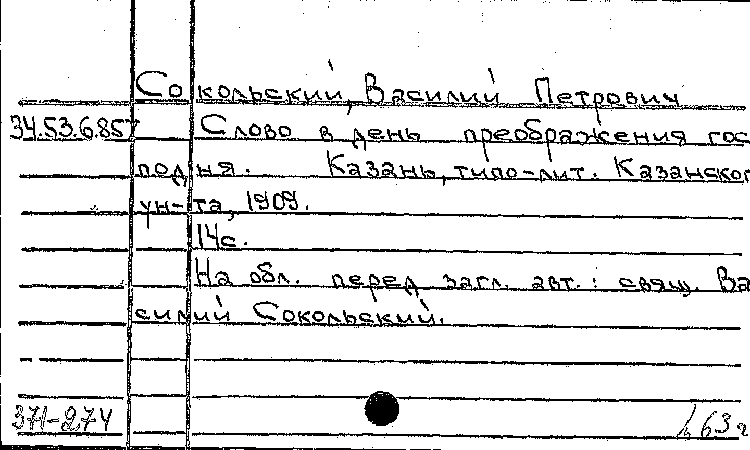 Сокольский, Василий Петрович
34.53.685 Слово в день преображения гос
подня. Казань, типо-лит. Казанског
ун-та, 1909.
14с.
На обл. перед загл. авт.: свящ. Ва
силий Сокольский.
371-274